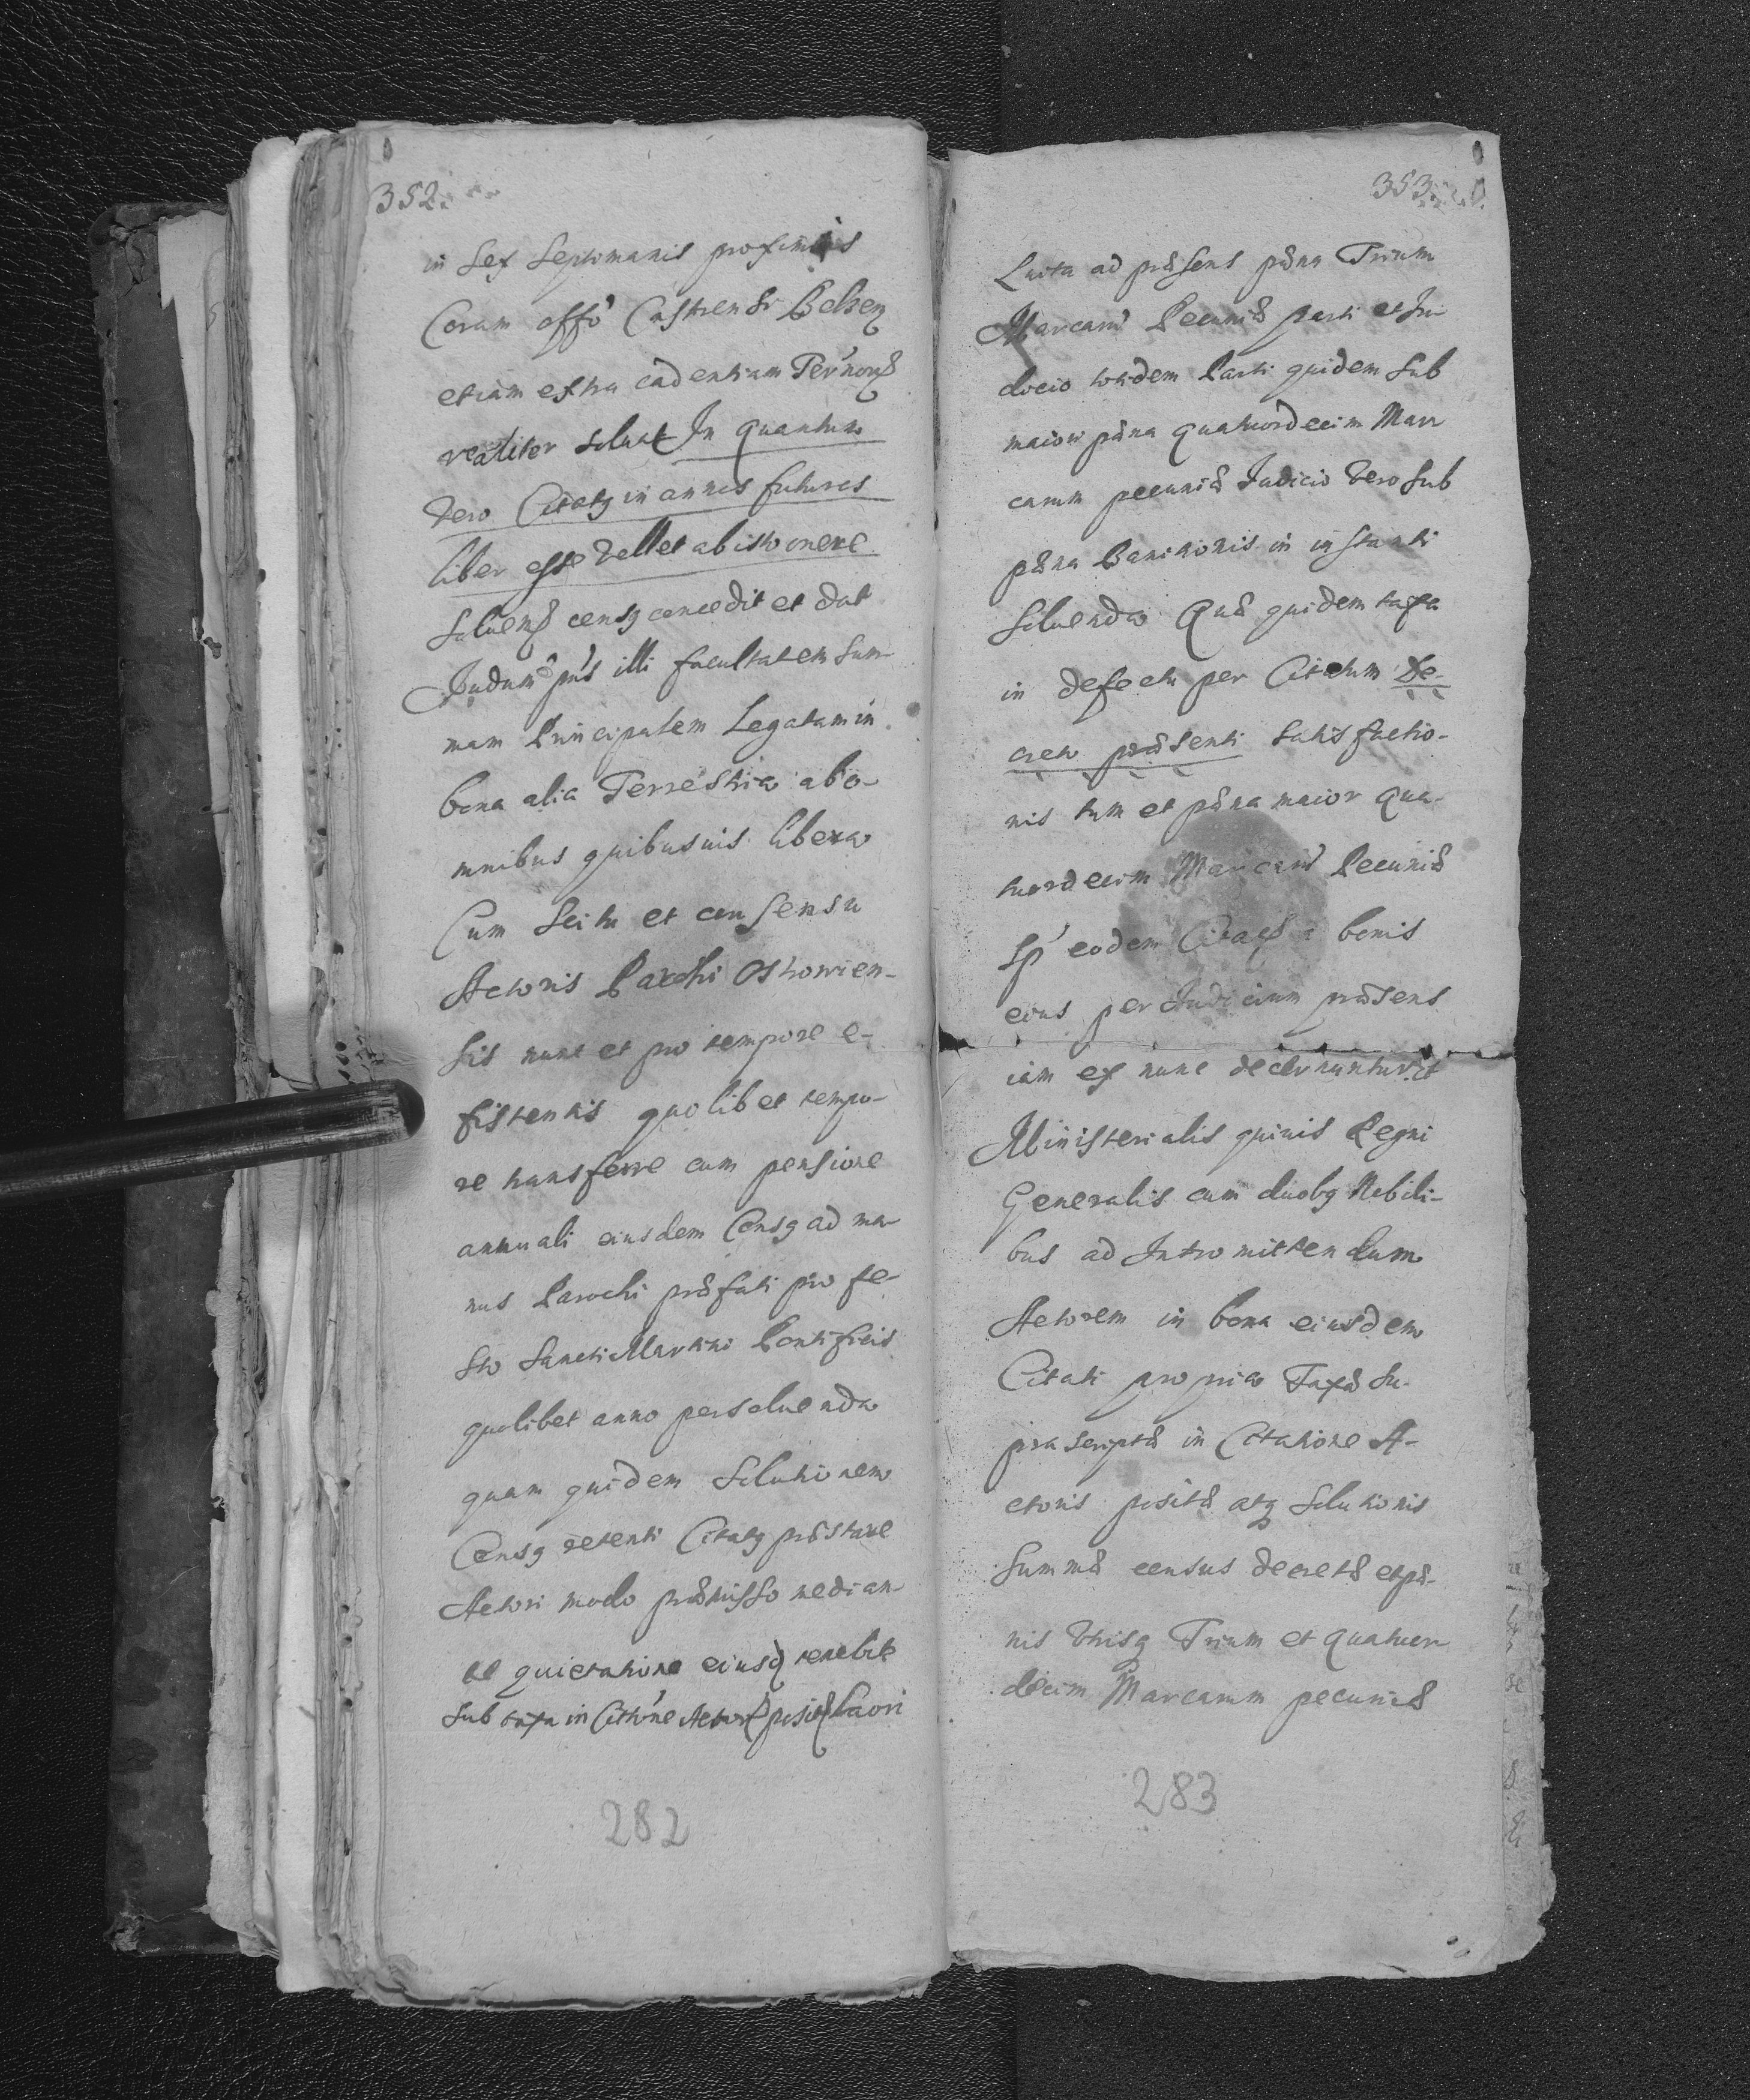 352.
in Sex Septimanis proximis
Coram offo Castrensi Belzen
etiam extra cadentiam Ter'norum
realiter soluat In quantum
vero Citatus in annos futuros
liber esse vellet ab isto onere
soluendi census concedit et dat
Judium pns illi facultatem Sum
mam Principalem Legatam in
bona alia Terrestria ab o-
mnibus quibusuis libera
Cum Scitu et consensu
Actoris Parochi Ostrouien-
sis nunc et pro tempore e-
xistentis quolibet tempo-
re transferre cum pensione
annuali eiusdem Census ad ma-
nus Parochi præfati pro fe-
sto Sancti Martini Pontificis
quolibet anno persoluenda
quam quidem Solutionem
Census retenti Citatus præstare
Actori modo præmisso median-
te quietatione eiusdem tenebit
sub taxa in Cittõne Actoris posita Paori
282
353.
Luita ad præsens pæna Trium
Marcarum Pecuniæ parti et Ju-
dicio totidem Parti quidem sub
maiori pæna quatuordecim Mar
carum pecuniæ Judicio vero sub
pæna Banitionis in instanti
soluenda Quæ quidem taxa
in defectu per Citatum De-
creto præsenti satisfactio-
nis tum et pæna maior qua-
tuordecim Marcarum Pecuniæ
Sp' eodem Citato et bonis
eius per Judicium præsens
iam ex nunc decernuntur et
Ministerialis quiuis Regni
Generalis cum duobus Nobili-
bus ad Intromittendum
Actorem in bona eiusdem
Citati propria Taxæ su-
prascriptæ in Citatione A-
ctoris positæ atque Solutionis
Summæ census decretæ et pæ-
nis vtrisque Trium et quatuor
decim Marcarum pecuniæ
283